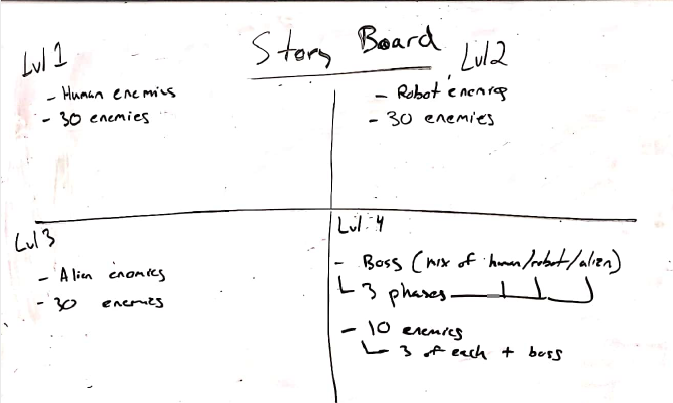 Story Board
Lvl 1
- Human enemies
- 30 enemies
Lvl 2
- Robot enemies
- 30 enemies
Lvl 3
- Alien enemies
- 30 enemies
Lvl 4
- Boss (mix of human/robot/alien)
3 phases
- 10 enemies
3 of each + boss